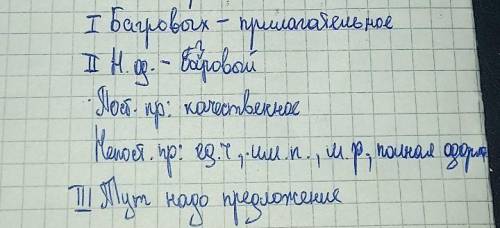 I Багровых - прилагательное
II Н.ф. - багровый
Пост. пр: качественное
Непост. пр: ед.ч, им.п., м.р, полная форма
III Тут надо предложения